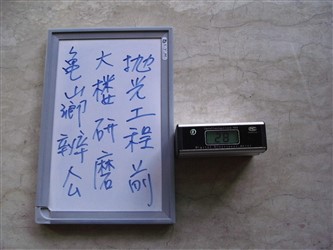 拋光工程前
大樓研磨
龜山鄉辦公
28